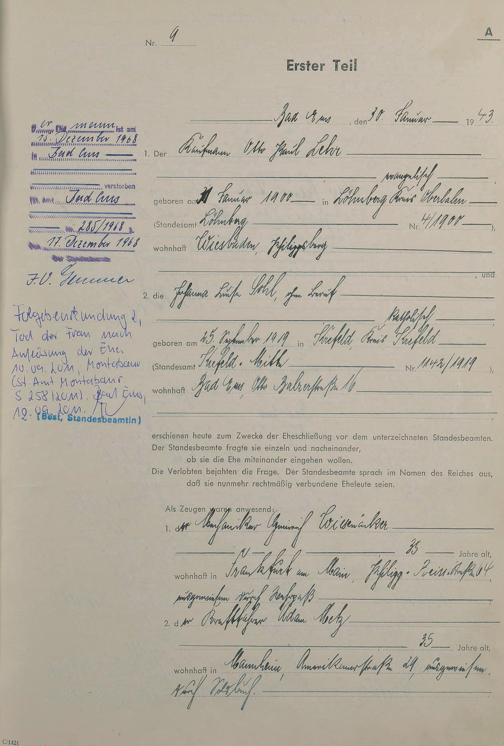 A
Nr. 9
Erster Teil
Bad Ems, den 30 Januar 1943
1. Der Kaufmann Otto Paul Lehr
evangelisch
geboren am 1 Januar 1900 in Löhnberg Kreis Oberlahn
(Standesamt Löhnberg Nr. 4/1900),
wohnhaft Wiesbaden,
und
2. die Johanna Luise ohne Beruf
katholisch
geboren am 25 September 1919 in Krefeld Kreis Krefeld
(Standesamt Krefeld-Mitte Nr. 1142/1919),
wohnhaft Bad Ems, Otto Balzerstraße 16
erschienen heute zum Zwecke der Eheschließung vor dem unterzeichneten Standesbeamten.
Der Standesbeamte fragte sie einzeln und nacheinander,
ob sie die Ehe miteinander eingehen wollen.
Die Verlobten bejahten die Frage. Der Standesbeamte sprach im Namen des Reiches aus,
daß sie nunmehr rechtmäßig verbundene Eheleute seien.
Als Zeugen waren anwesend:
1. der Mechaniker Heinrich
35 Jahre alt,
wohnhaft in Frankfurt am Main,
ausgewiesen durch Wehrpaß
2. der Kraftfahrer Adam Metz
35 Jahre alt,
wohnhaft in Mannheim, Amerikanerstraße ausgewiesen
durch Soldbuch.
Der Ehemann ist am
13. Dezember 1968
in Bad Ems
verstorben
Bad Ems
Nr. 285/1968
17. Dezember 1968
Der Standesbeamte
I.V.
Folgebeurkundung 2,
Tod der Frau nach
Auflösung der Ehe.
10.09.2011, Montabaur
(St.Amt Montabaur
S 258/2011). Bad Ems,
12.09.2011.
(Best, Standesbeamtin)
C/1421